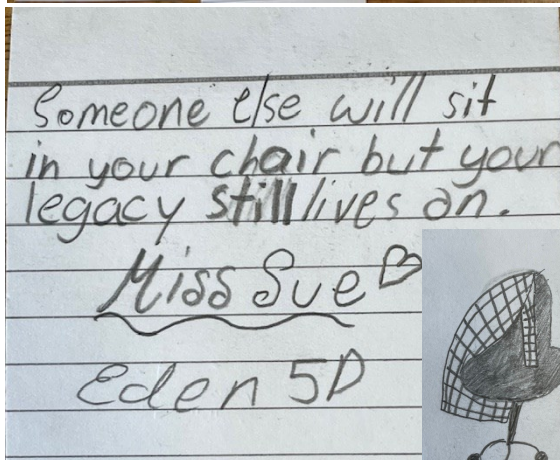 Someone else will sit
in your chair but your
legacy still lives on.
Miss Sue
Eden 5D